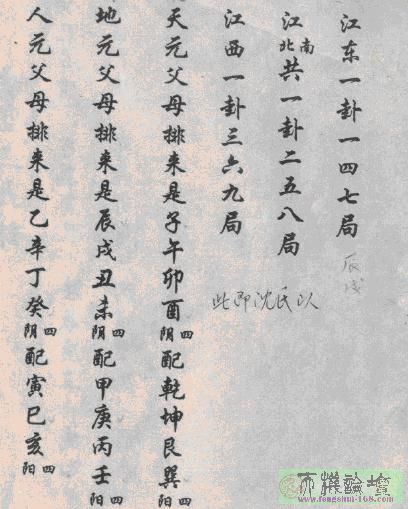 江东一卦一四七局
辰戌
江南北共一卦二五八局
江西一卦三六九局
此即沈氏以
天元父母排来是子午卯酉四阴配乾坤艮巽四阳
地元父母排来是辰戌丑未四阴配甲庚丙壬四阳
人元父母排来是乙辛丁癸四阴配寅巳亥四阳
天機論壇
www.fengshui-168.com